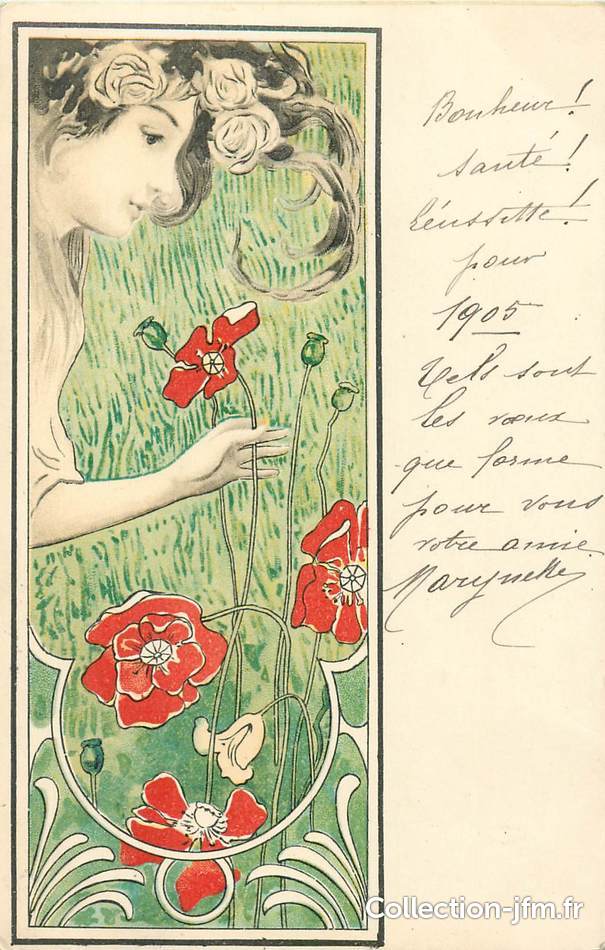 Bonheur!
santé!
Réussite!
pour
1905
Tels sont
les vœux
que forme
pour vous
votre amie
Collection-jfm.fr